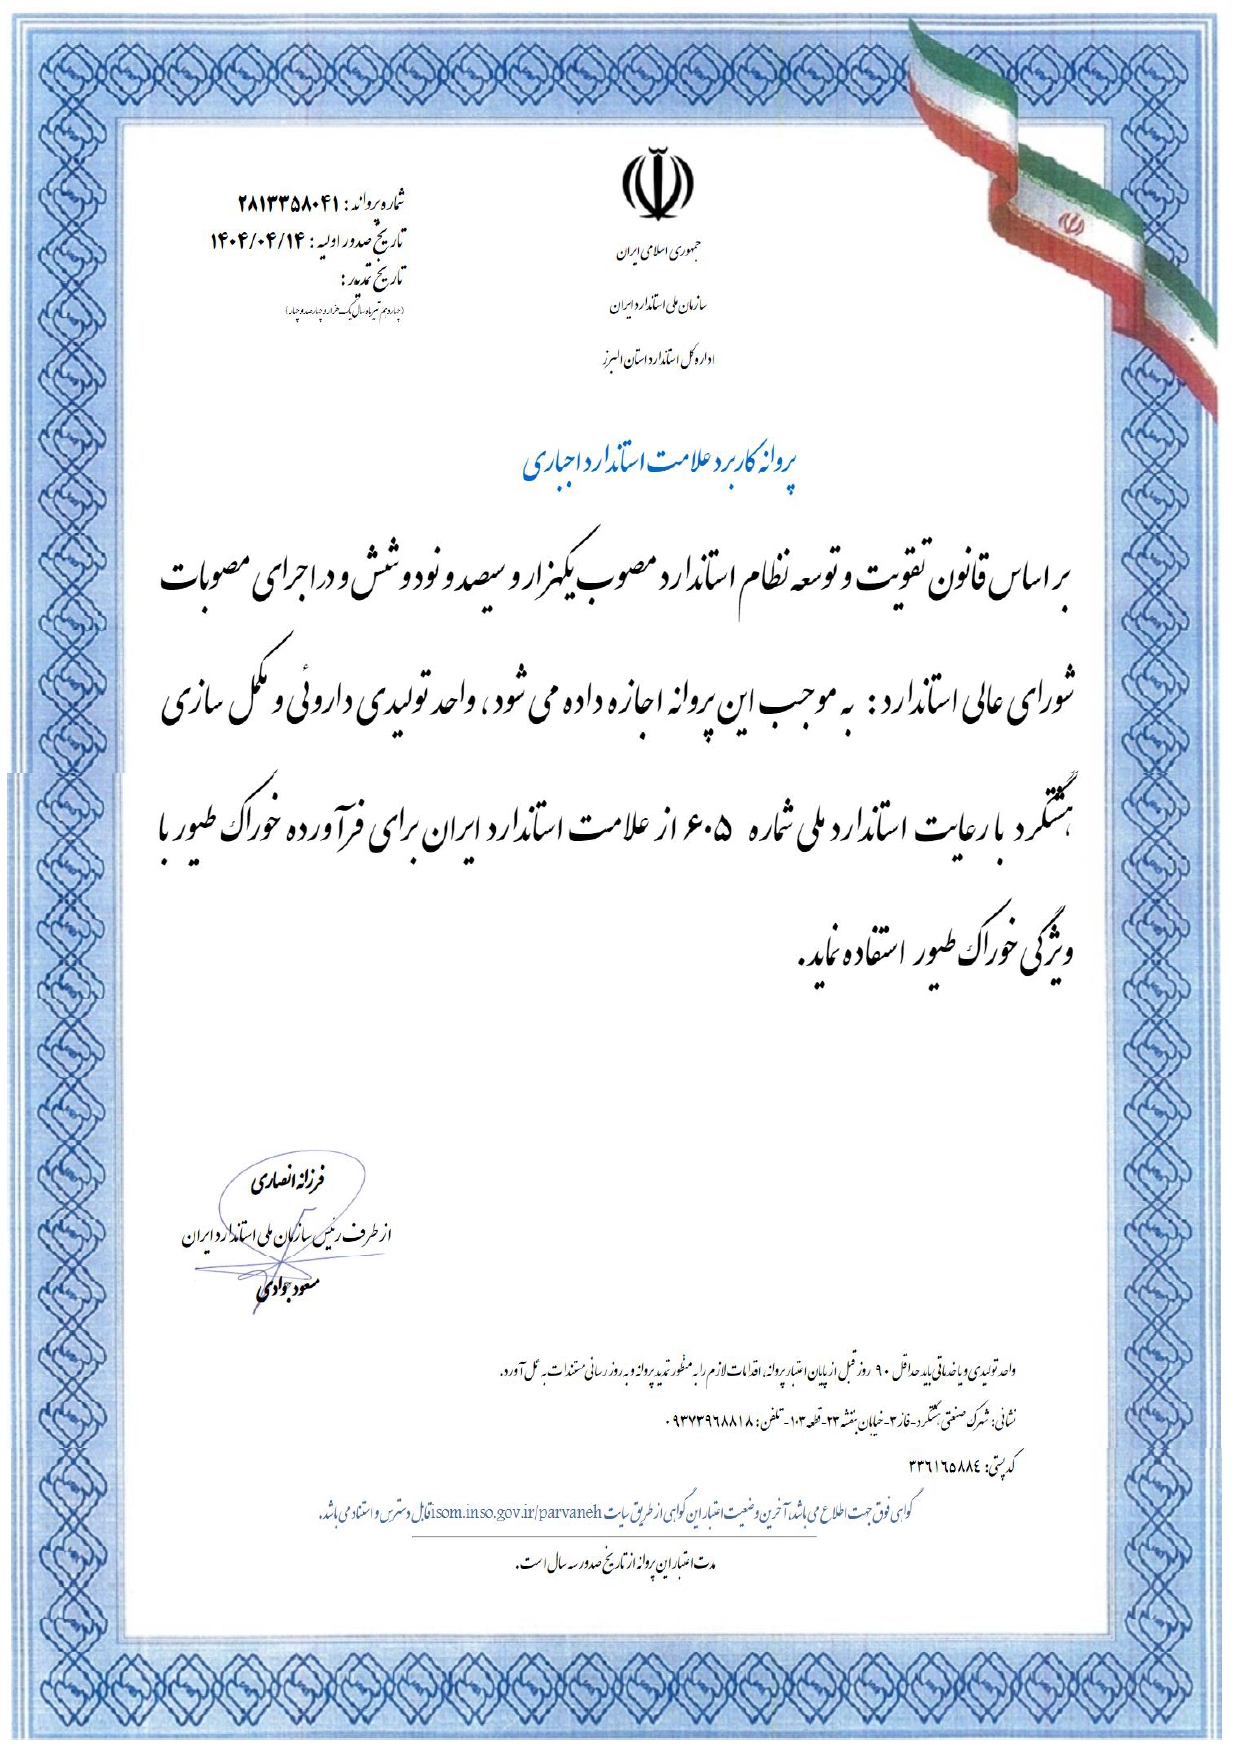 جمهوری اسلامی ایران
سازمان ملی استاندارد ایران
اداره کل استاندارد استان البرز
شماره پروانه : ۲۸۱۳۳۵۸۰۴۱
تاریخ صدور اولیه : ۱۴۰۴/۰۴/۱۴
تاریخ تمدید :
(چهاردهم تیر ماه سال یک هزار و چهارصد و چهار)
پروانه کاربرد علامت استاندارد اجباری
بر اساس قانون تقویت و توسعه نظام استاندارد مصوب یکهزار و سیصد و نود و شش و در اجرای مصوبات
شورای عالی استاندارد : به موجب این پروانه اجازه داده می شود ، واحد تولیدی داروئی و مکمل سازی
هشتگرد با رعایت استاندارد ملی شماره ۶۰۵ از علامت استاندارد ایران برای فرآورده خوراک طیور با
ویژگی خوراک طیور استفاده نماید .
فرزانه انصاری
از طرف رئیس سازمان ملی استاندارد ایران
مسعود جوادی
واحد تولیدی و یا خدماتی باید حداقل ۹۰ روز قبل از پایان اعتبار پروانه، اقدامات لازم را به منظور تمدید پروانه و به روز رسانی مستندات به عمل آورد.
نشانی: شهرک صنعتی هشتگرد-فاز ۳-خیابان بنفشه ۲۳-قطعه ۱۰۳- تلفن: ۰۹۳۷۳۹۶۸۸۱۸
کد پستی: ۳۳۶۱۶۵۸۸۴
گواهی فوق جهت اطلاع می باشد، آخرین وضعیت اعتبار این گواهی از طریق سایت isom.inso.gov.ir/parvaneh قابل دسترس و استناد می باشد.
مدت اعتبار این پروانه از تاریخ صدور سه سال است.